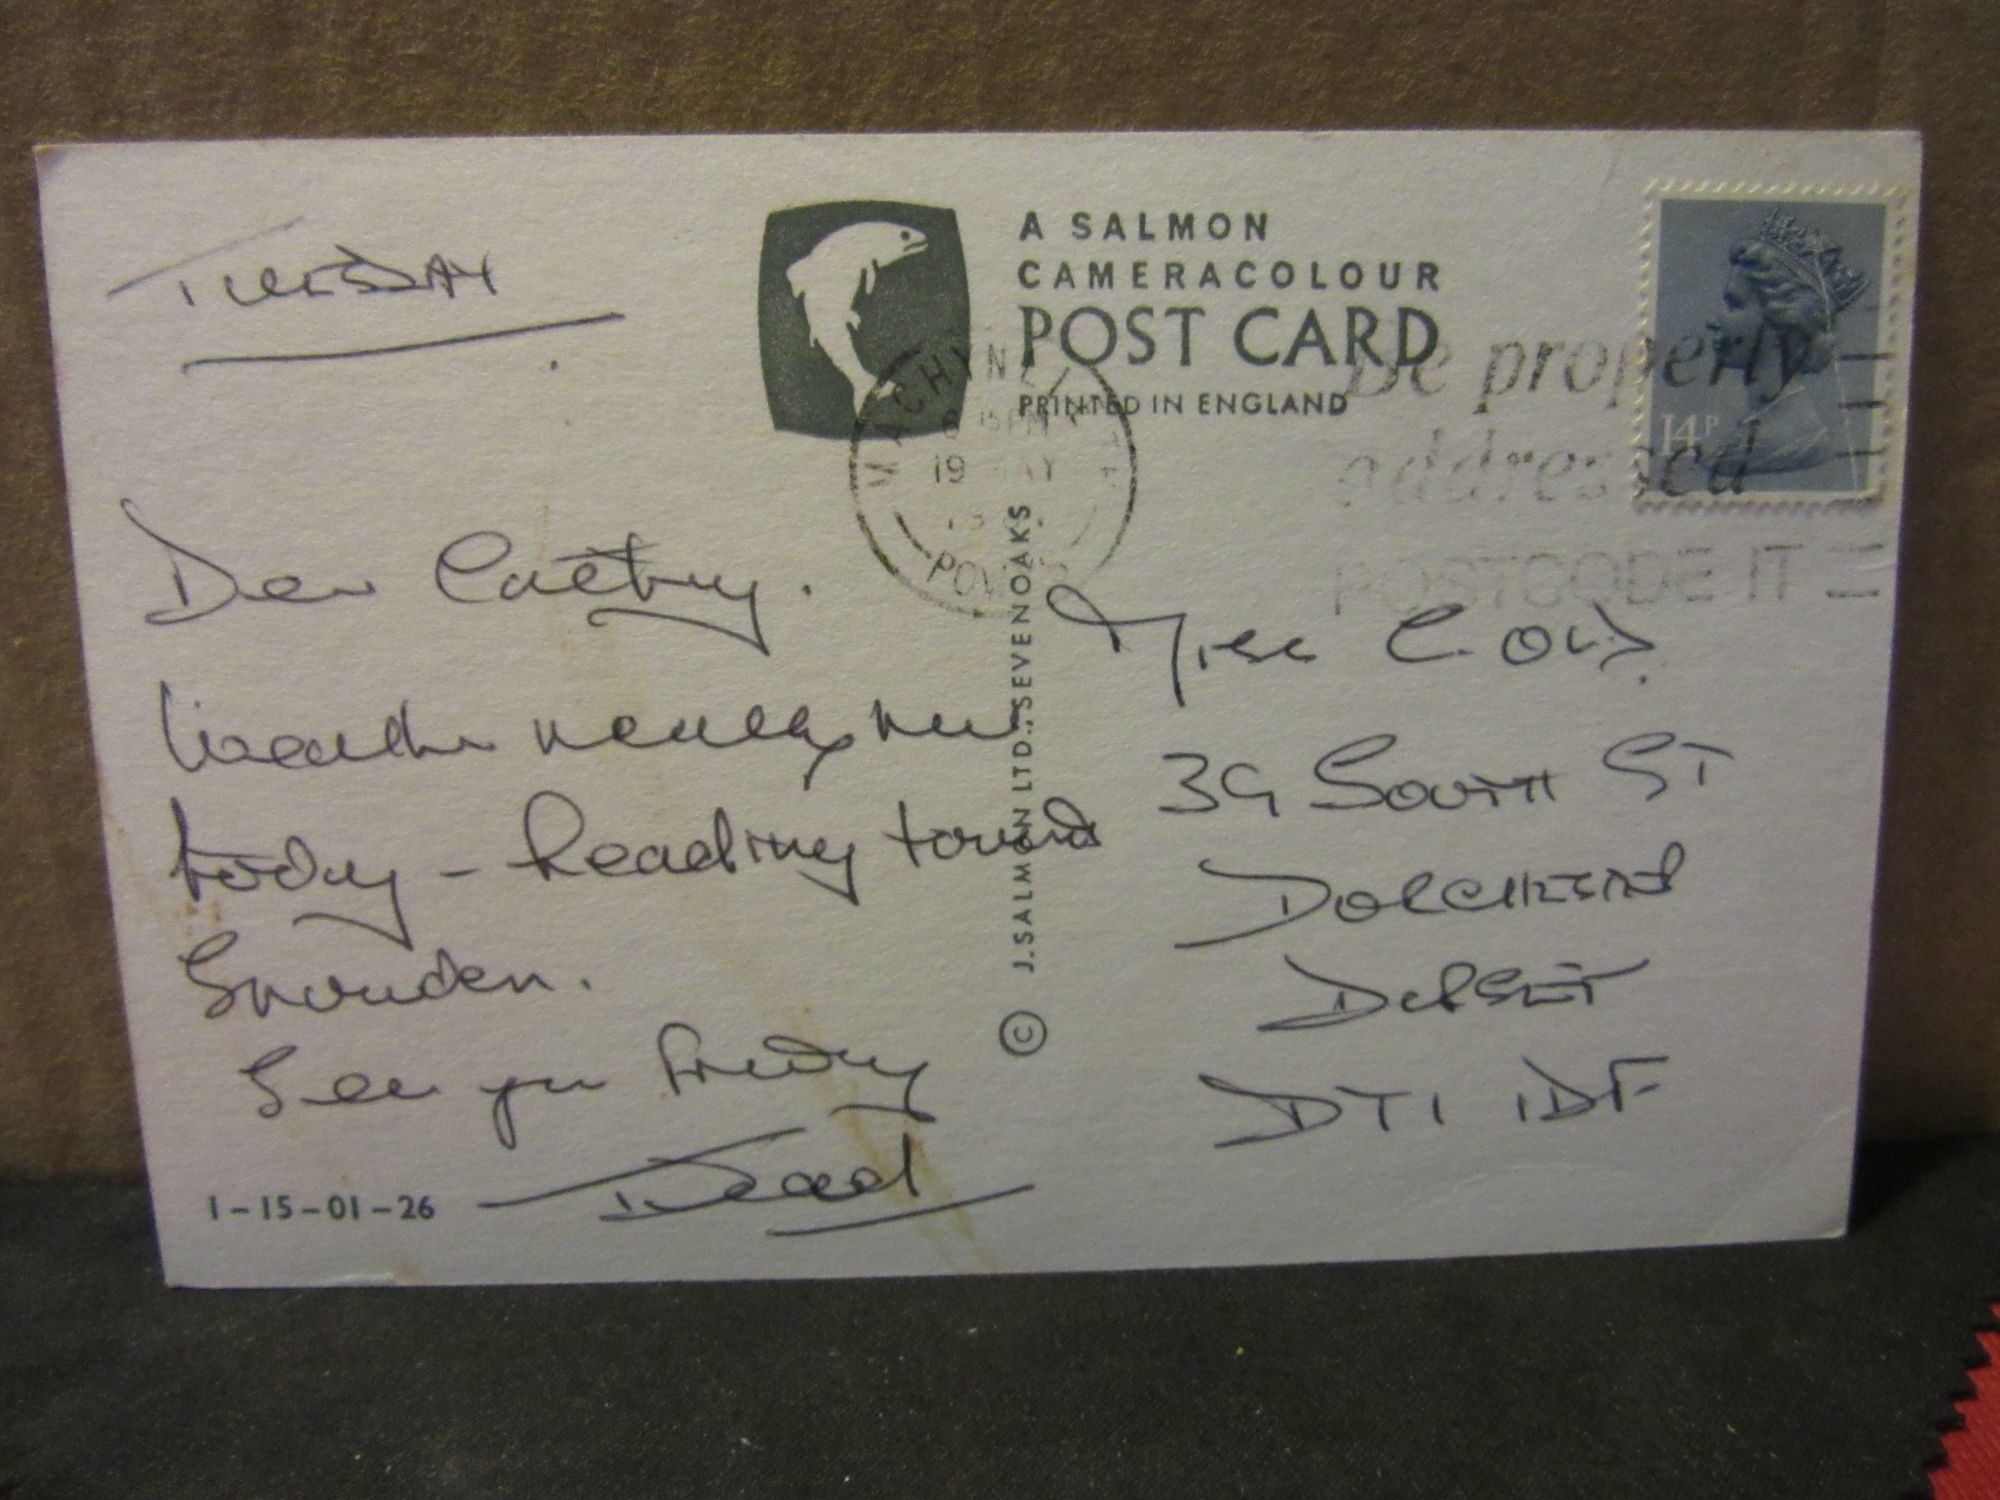 TUESDAY
A SALMON
CAMERACOLOUR
POST CARD
PRINTED IN ENGLAND
MACHYNLLETH
6 15 PM
19 MAY
POWYS
Be properly
addressed
POSTCODE IT
14P
Dear Cathy.
Weather
today - heading towards
Snowden.
See you Friday
Dad
1-15-01-26
© J. SALMON LTD., SEVENOAKS
Miss C.
39 SOUTH ST
DORCHESTER
DORSET
DT1 1DF